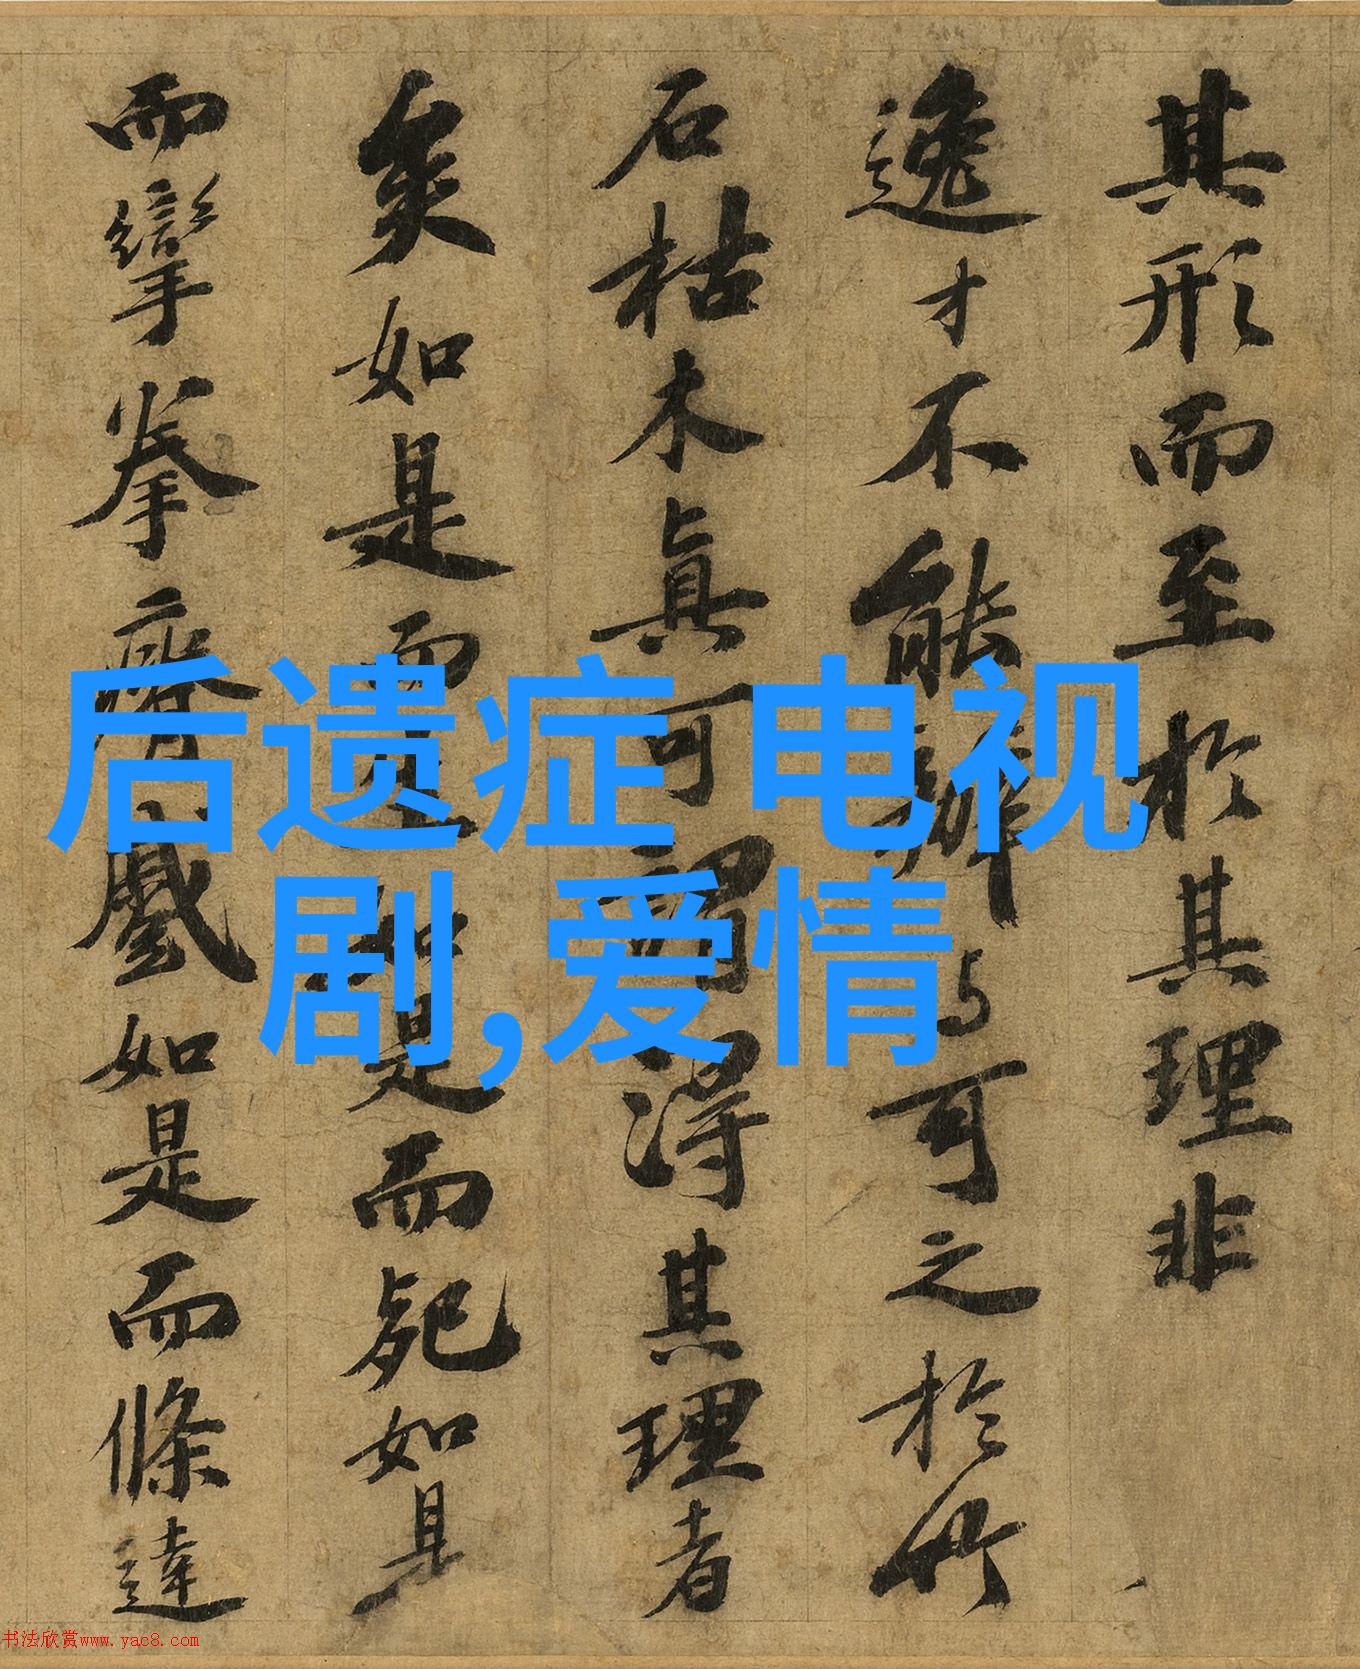 其形而至於其理非
逸才不能辦與可之於竹
石枯木真可謂得其理者
矣如是而生如是而死如是
而攣拳瘠蹙如是而條達
后遗症 电视
剧,爱情
书法欣赏www.yac8.com